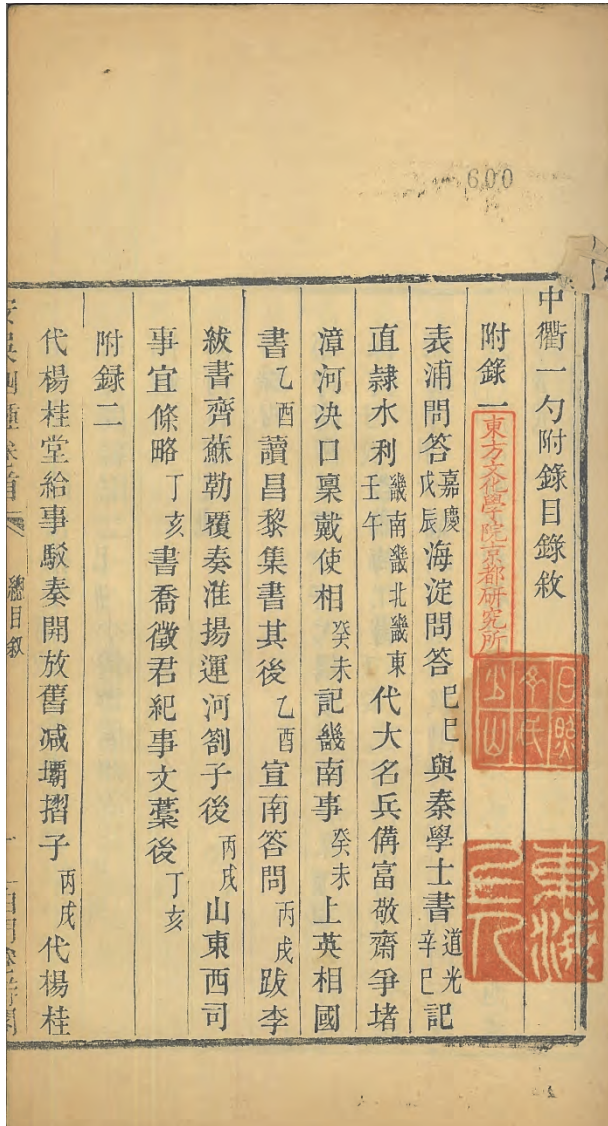 600
中衢一勺附錄目錄敘
附錄一
表浦問答嘉慶戊辰海淀問答己巳與秦學士書道光辛巳記
直隷水利畿南畿北畿東壬午代大名兵備富敬齋爭堵
漳河决口稟戴使相癸未記畿南事癸未上英相國
書乙酉讀昌黎集書其後乙酉宣南答問丙戌跋李
紱書齊蘇勒覆奏淮揚運河劄子後丙戌山東西司
事宜條略丁亥書喬徵君紀事文藳後丁亥
附録二
代楊桂堂給事駁奏開放舊減壩摺子丙戌代楊桂
總目叙
東方文化學院京都研究所